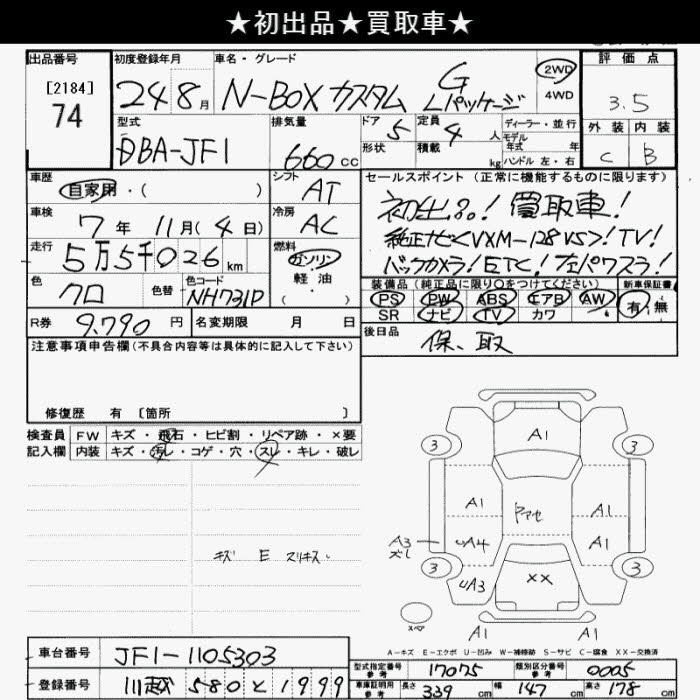 ★初出品★買取車★
出品番号
[2184]
74
初度登録年月
24 8月
車名・グレード
N-BOX カスタム G Lパッケージ
2WD
4WD
評価点
3.5
外装 内装
C B
型式
DBA-JF1
排気量
660cc
ドア 5
形状
定員 4人
積載 kg
ディーラー・並行
モデル
年式 年
ハンドル 左・右
車歴
自家用・( )
シフト
AT
セールスポイント(正常に機能するものに限ります)
初出品! 買取車!
純正ナビ<VXM-128VS>! TV!
バックカメラ! ETC! 左パワスラ!
車検
7年 11月(4日)
冷房
AC
走行
5万5千026km
燃料
ガソリン
軽油
( )
色
クロ
色替
色コード
NH731P
装備品(純正品に限り○をつけてください)
新車保証書
PS PW ABS エアB AW
SR ナビ TV カワ
有・無
R券 9,790円
名変期限 月 日
後日品
保、取
注意事項申告欄(不具合内容等は具体的に記入して下さい)
修復歴 有 〔箇所 〕
検査員
記入欄
FW キズ・飛石・ヒビ割・リペア跡・×要
内装 キズ・汚レ・コゲ・穴・スレ・キレ・破レ
キズ E スリキズ
A1
3 3
A1 A1
ヤアセ
A3
ズレ
A4 A1
3 3
A3 XX
スペア
A1 A1
A-キズ E-エクボ U-凹み W-補修跡 S-サビ C-腐食 XX-交換済
車台番号
JF1-1105303
登録番号
川越 580 と 1999
型式指定番号
参考
17075
類別区分番号
参考
0005
車庫証明用
参考
長さ 339cm 幅 147cm 高さ 178cm